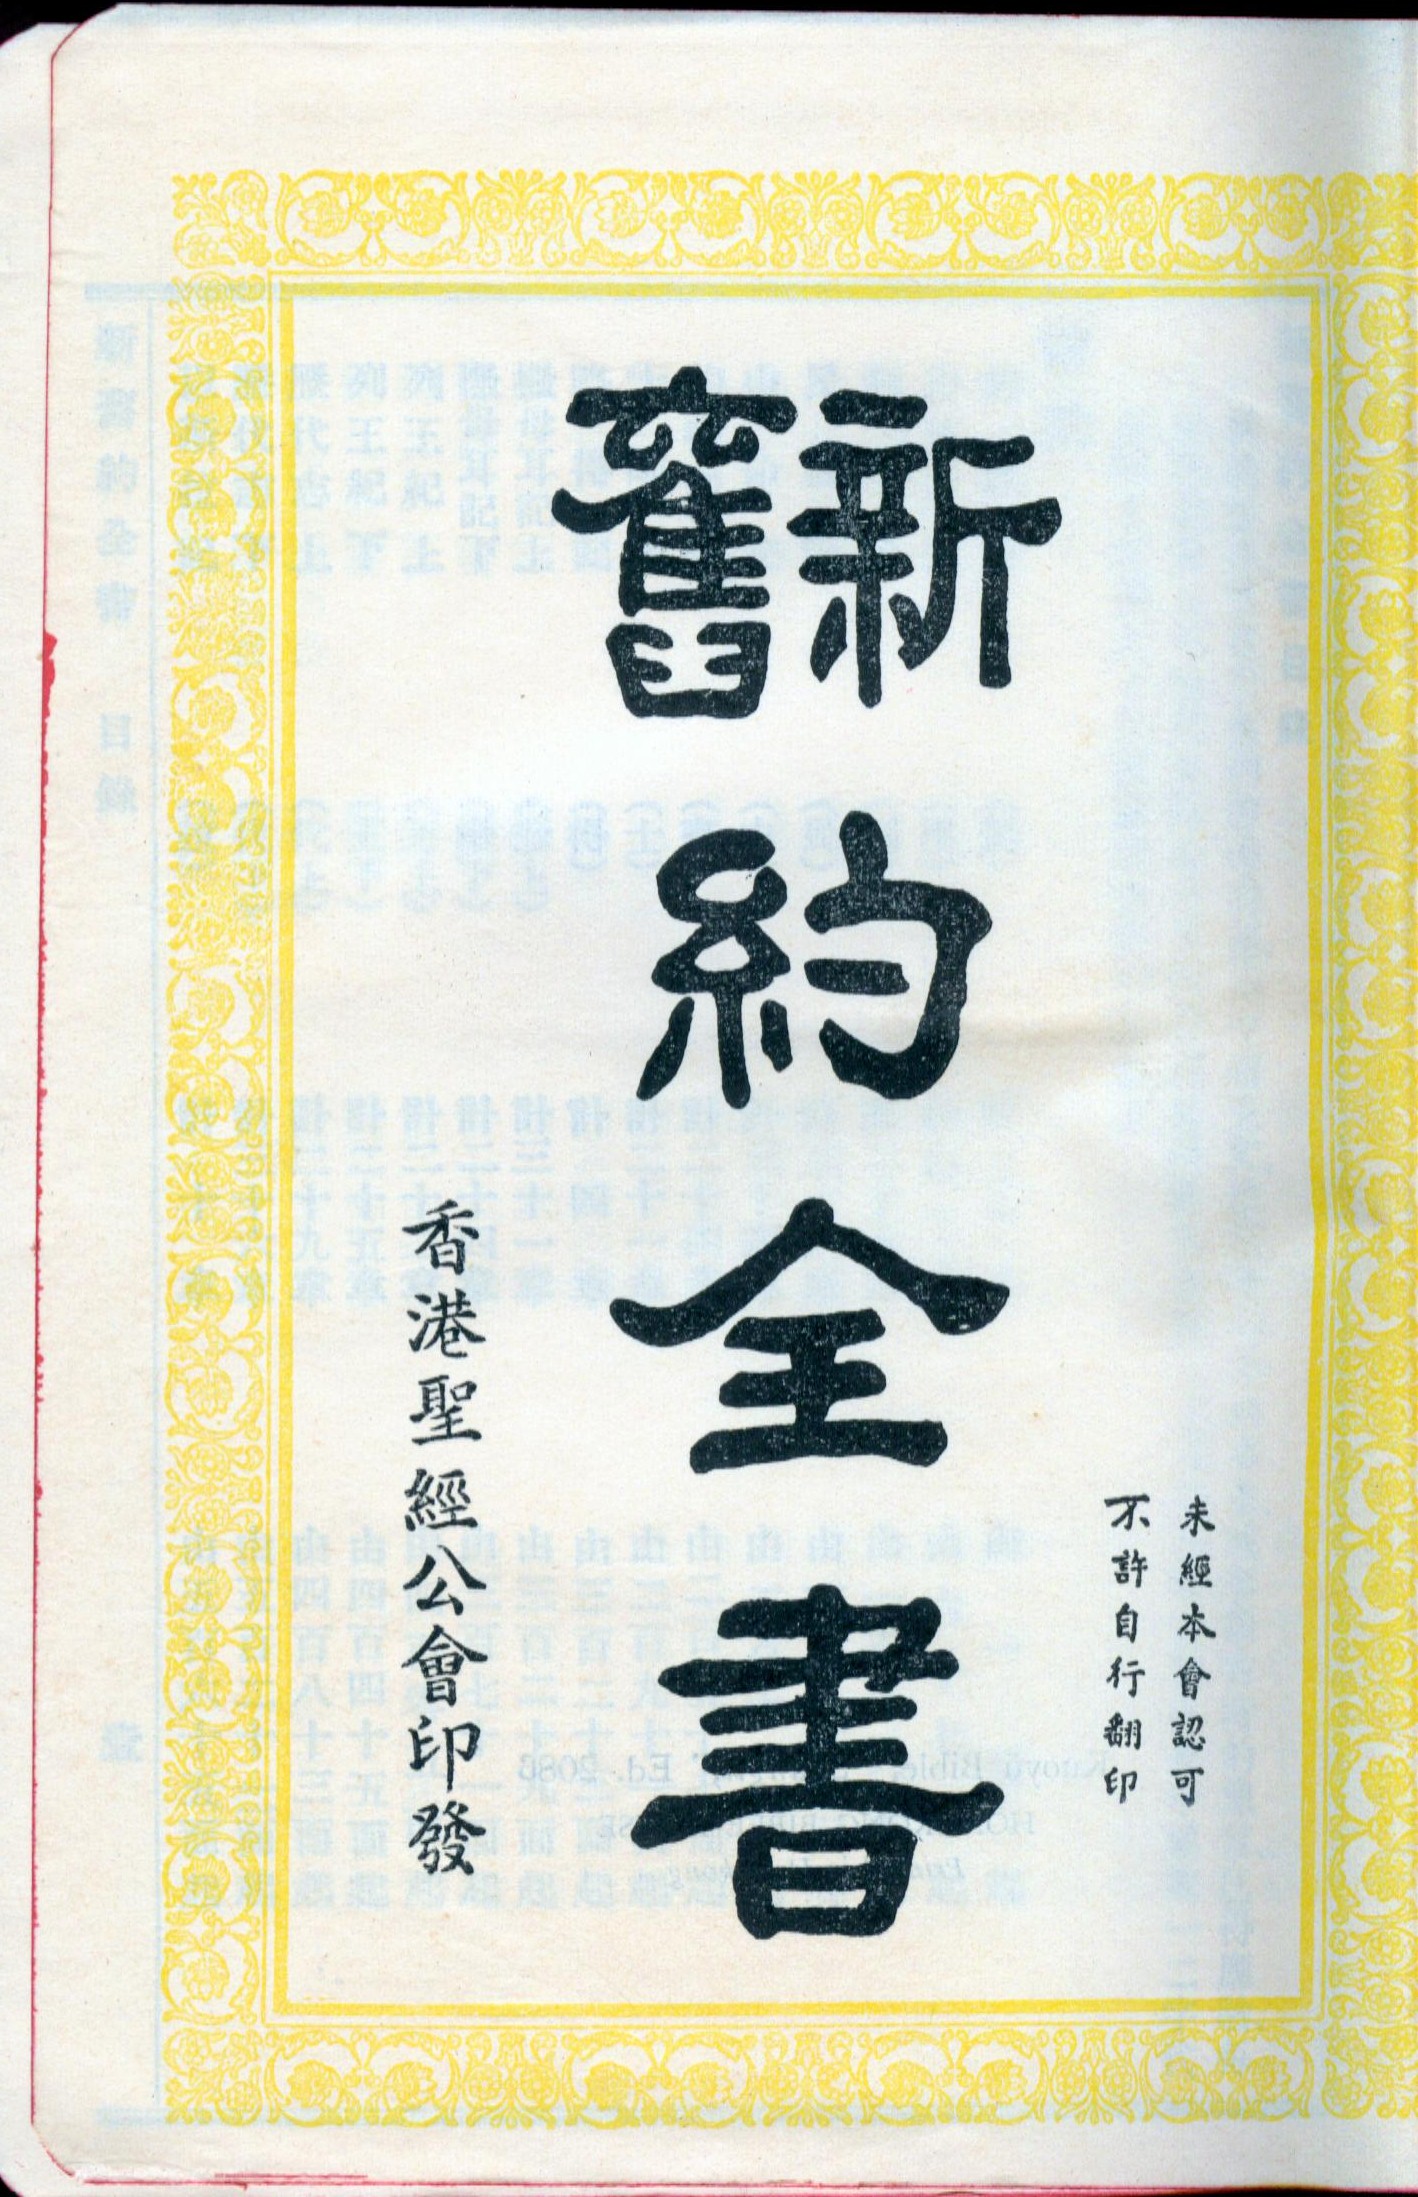 未經本會認可
不許自行翻印
新舊
約全書
香港聖經公會印發